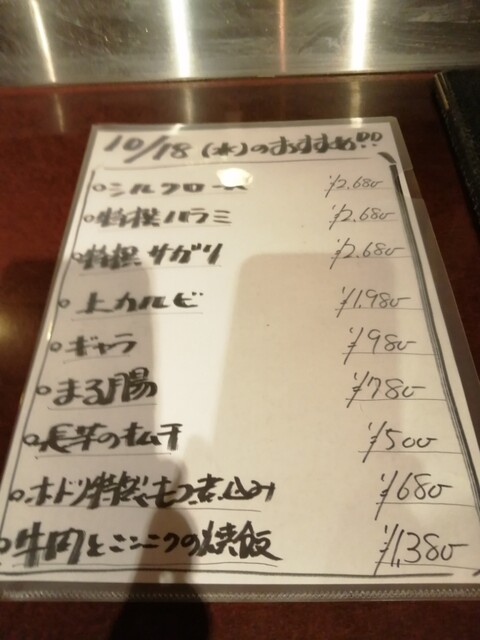 10/18(水)のおすすめ!!
○シルクロース ¥2.680
○特撰ハラミ ¥2.680
○特撰サガリ ¥2.680
○上カルビ ¥1.980
○ギャラ ¥980
○まる腸 ¥780
○長芋のキムチ ¥500
○ホドリ特製もつ煮込み ¥680
○牛肉とニンニクの焼飯 ¥1,380